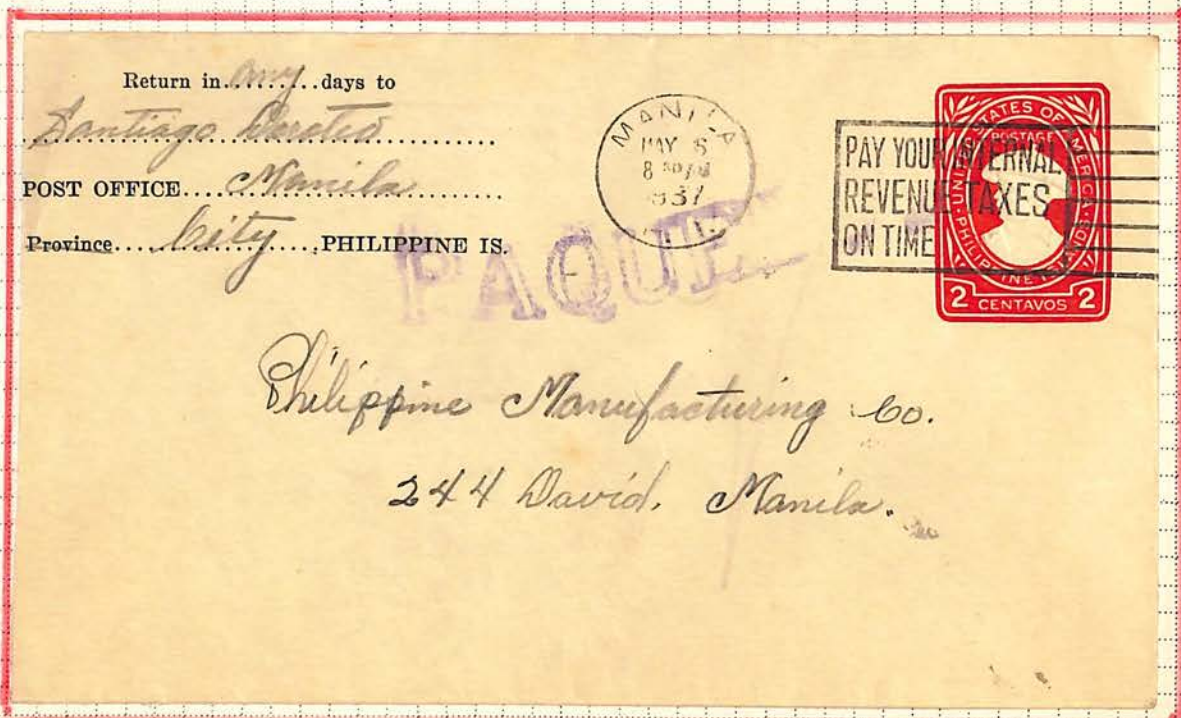 Return in any days to
Santiago
POST OFFICE Manila
Province City, PHILIPPINE IS.
MANILA
MAY 6
8
1937
PAY YOUR INTERNAL
REVENUE TAXES
ON TIME
UNITED STATES OF AMERICA
POSTAGE
PHILIPPINE ISLANDS
2 CENTAVOS 2
PAQUE
Philippine Manufacturing Co.
244 David, Manila.